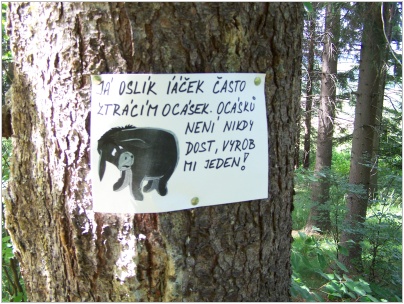 JÁ OSLÍK IÁČEK ČASTO
ZTRÁCÍM OCÁSEK. OCÁSKŮ
NENÍ NIKDY
DOST, VYROB
MI JEDEN!